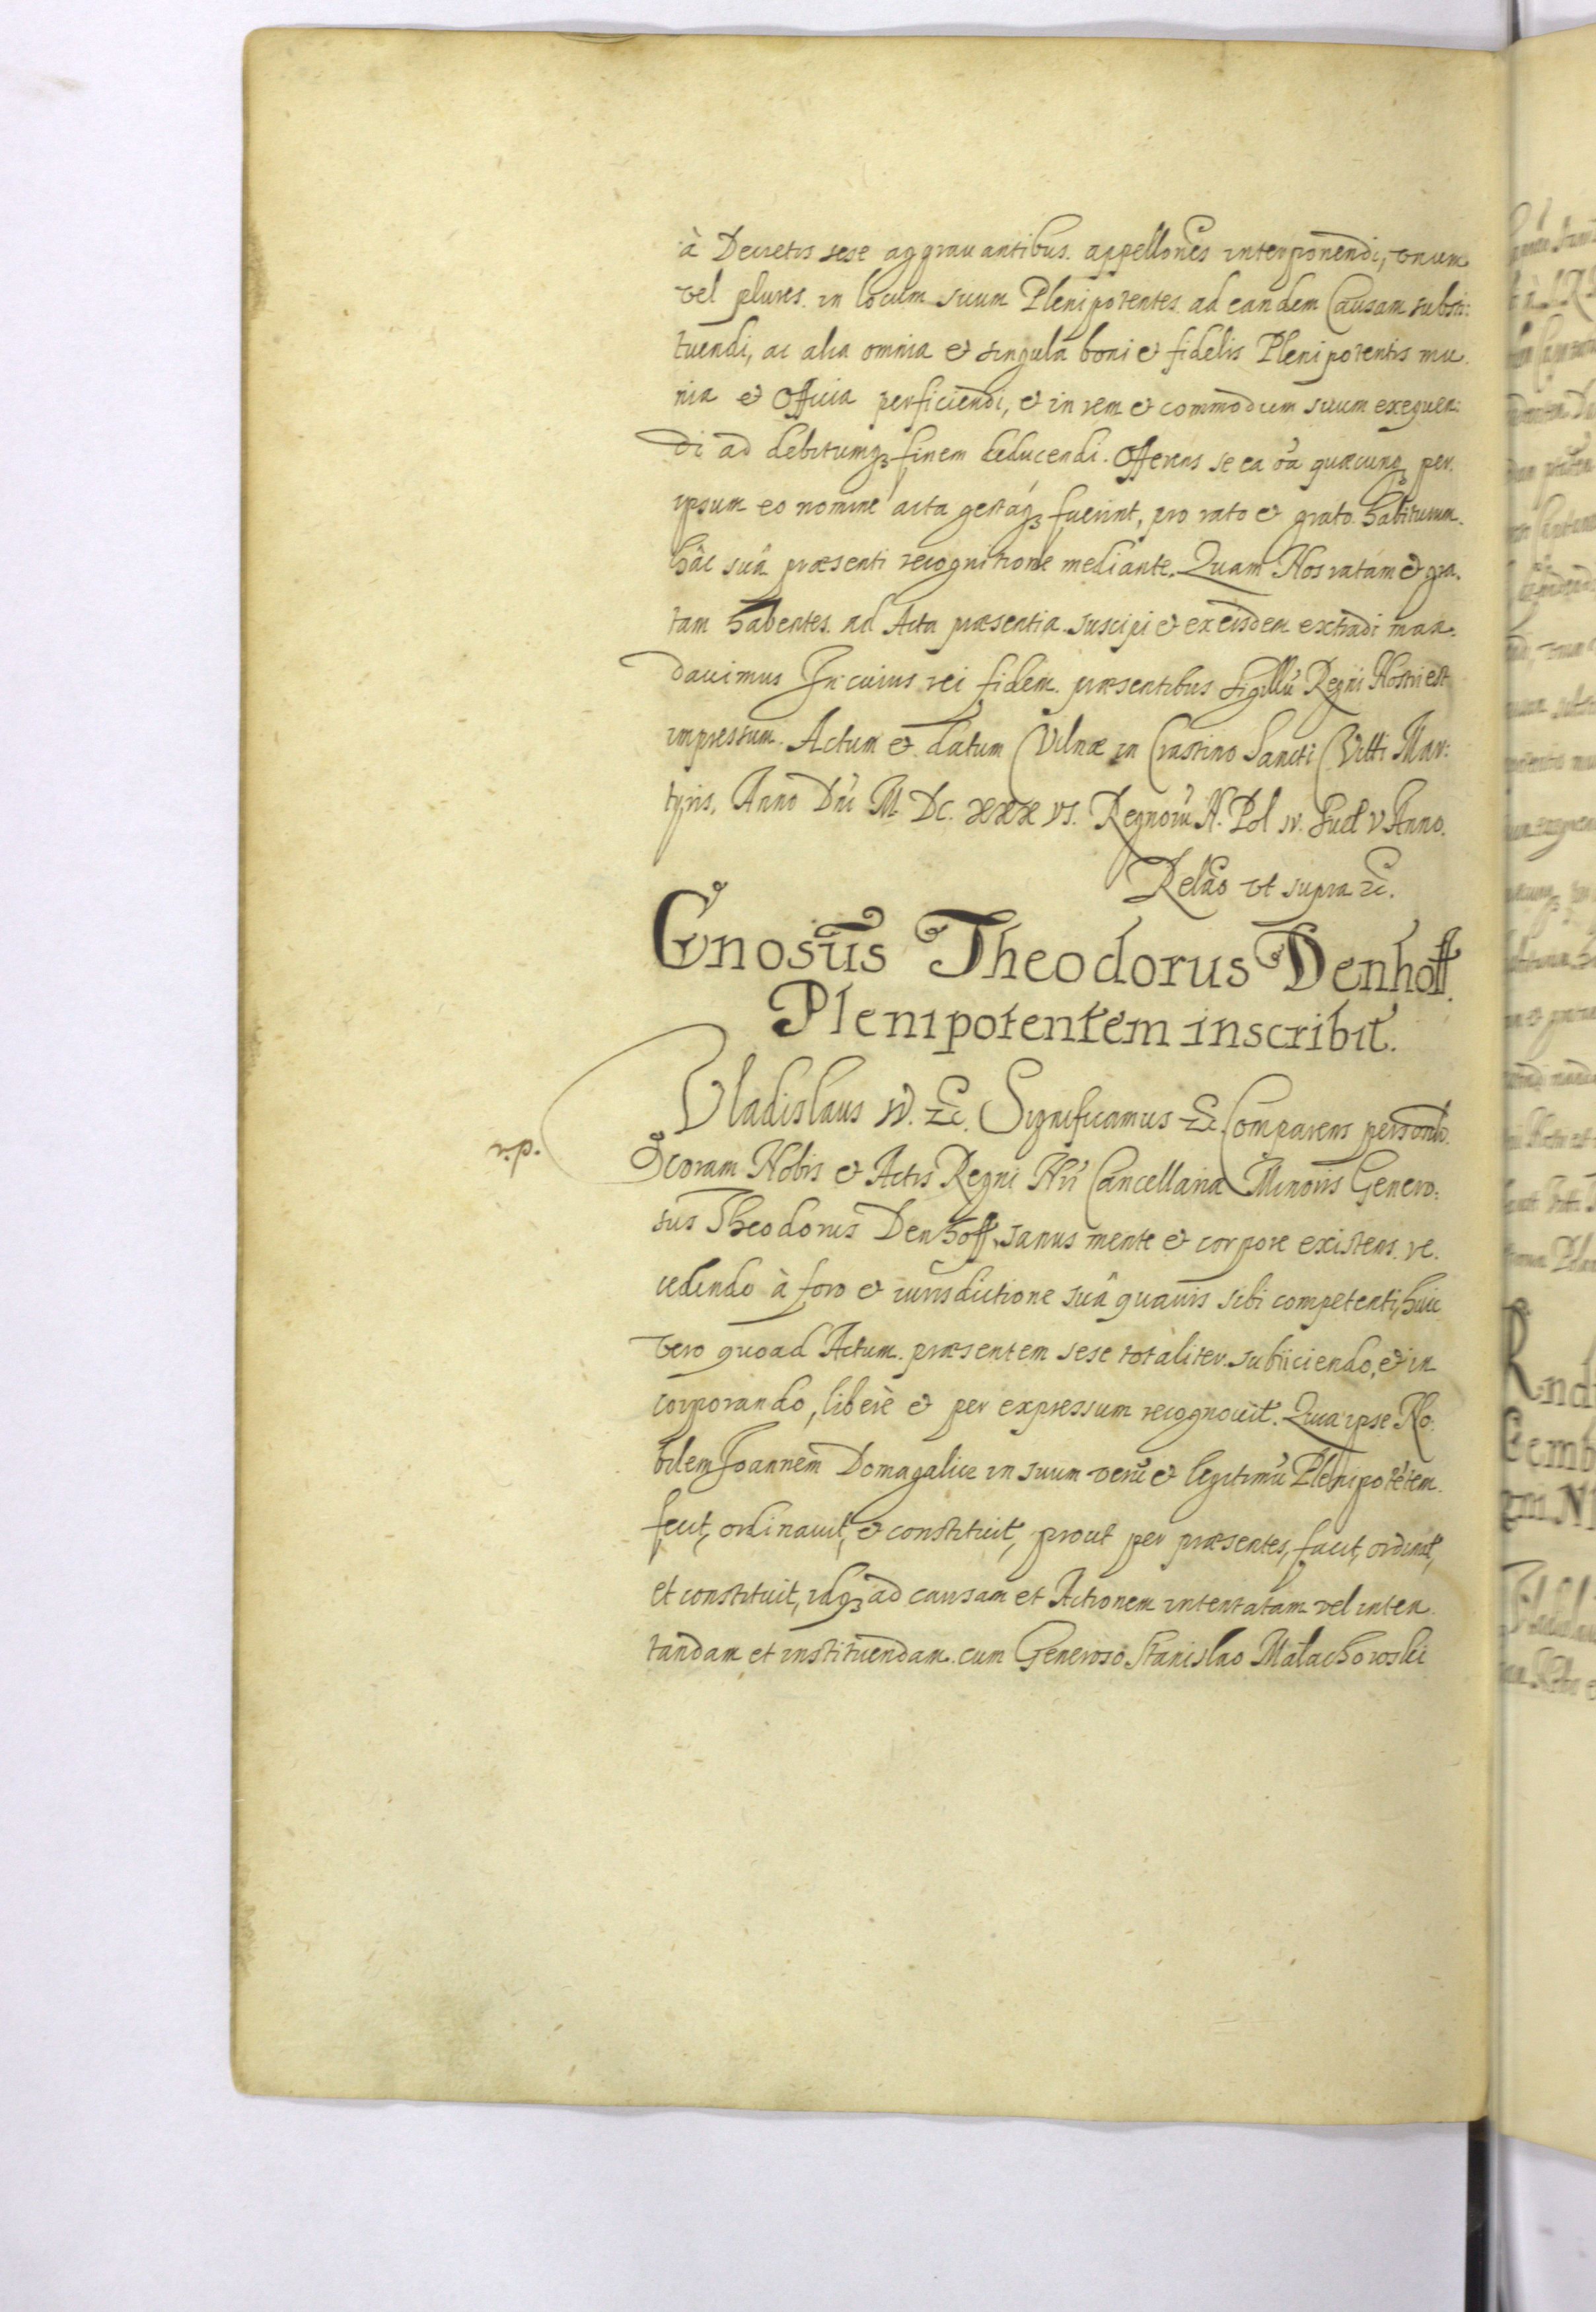 à Decretis sese aggravantibus. appellones interponendi, vnum
vel plures in locum suum Plenipotentes ad eandem Causam substi:
tuendi, ac alia omnia et singula boni et fidelis Plenipotentis mu
nia et Officia perficiendi, et in rem et commodum suum exequen:
di ad debitumq3 finem deducendi. Offerens se ea oia quæcunq3 per
ipsum eo nomine acta gestaq3 fuerint, pro rato et grato habiturum.
hâc suâ præsenti recognitione mediante. Quam Nos ratam et gra.
tam habentes. ad Acta præsentia suscipi et ex eisdem extradi man.
davimus In cuius rei fidem præsentibus sigillū Regni Nostri est
impressum. Actum et datum Vilnæ in Crastino Sancti Vitti Mar:
tyris, Anno Dni M. DC. XXX VI. Regnorū N. Pol IV. Sued V Anno.
Relao vt supra etc.
Gnosus Theodorus Denhoff.
Plenipotentem inscribit.
Vladislaus IV. etc. Significamus etc. Comparens personlr.
r.p.
coram Nobis et Actis Regni Nri Cancellariæ Minoris Genero:
sus Theodorus Denhoff, sanus mente et corpore existens. re.
cedendo à foro et iurisdictione suâ quavis sibi competenti, huic
vero quoad Actum præsentem sese totaliter subiiciendo, et in
corporando, liberè et per expressum recognovit. Quia ipse No:
bilem Joannem Domagalice in suum verū et legitimū Plenipotētem
fecit, ordinavit, et constituit, prout per præsentes, facit, ordinat,
et constituit, idq3 ad causam et Actionem intentatam vel inten
tandam et instituendam cum Generoso Stanislao Małachowski